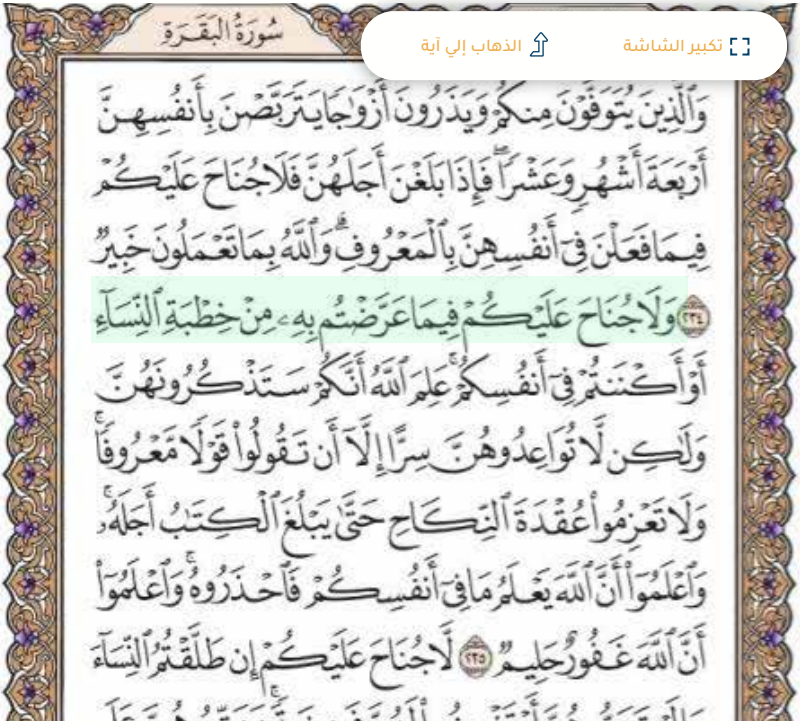 سُورَةُ البَقَرَةِ
تكبير الشاشة
الذهاب إلي آية
وَٱلَّذِينَ يُتَوَفَّوْنَ مِنكُمْ وَيَذَرُونَ أَزْوَٰجًا يَتَرَبَّصْنَ بِأَنفُسِهِنَّ
أَرْبَعَةَ أَشْهُرٍ وَعَشْرًا ۖ فَإِذَا بَلَغْنَ أَجَلَهُنَّ فَلَا جُنَاحَ عَلَيْكُمْ
فِيمَا فَعَلْنَ فِىٓ أَنفُسِهِنَّ بِٱلْمَعْرُوفِ ۗ وَٱللَّهُ بِمَا تَعْمَلُونَ خَبِيرٌ
٢٣٤ وَلَا جُنَاحَ عَلَيْكُمْ فِيمَا عَرَّضْتُم بِهِۦ مِنْ خِطْبَةِ ٱلنِّسَآءِ
أَوْ أَكْنَنتُمْ فِىٓ أَنفُسِكُمْ ۚ عَلِمَ ٱللَّهُ أَنَّكُمْ سَتَذْكُرُونَهُنَّ
وَلَٰكِن لَّا تُوَاعِدُوهُنَّ سِرًّا إِلَّآ أَن تَقُولُوا۟ قَوْلًا مَّعْرُوفًا ۚ
وَلَا تَعْزِمُوا۟ عُقْدَةَ ٱلنِّكَاحِ حَتَّىٰ يَبْلُغَ ٱلْكِتَٰبُ أَجَلَهُۥ ۚ
وَٱعْلَمُوٓا۟ أَنَّ ٱللَّهَ يَعْلَمُ مَا فِىٓ أَنفُسِكُمْ فَٱحْذَرُوهُ ۚ وَٱعْلَمُوٓا۟
أَنَّ ٱللَّهَ غَفُورٌ حَلِيمٌ ٢٣٥ لَّا جُنَاحَ عَلَيْكُمْ إِن طَلَّقْتُمُ ٱلنِّسَآءَ